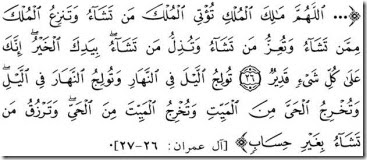 ﴿... اللَّهُمَّ مَالِكَ الْمُلْكِ تُؤْتِي الْمُلْكَ مَن تَشَاءُ وَتَنزِعُ الْمُلْكَ
مِمَّن تَشَاءُ وَتُعِزُّ مَن تَشَاءُ وَتُذِلُّ مَن تَشَاءُ ۖ بِيَدِكَ الْخَيْرُ ۖ إِنَّكَ
عَلَىٰ كُلِّ شَيْءٍ قَدِيرٌ ﴿٢٦﴾ تُولِجُ اللَّيْلَ فِي النَّهَارِ وَتُولِجُ النَّهَارَ فِي اللَّيْلِ ۖ
وَتُخْرِجُ الْحَيَّ مِنَ الْمَيِّتِ وَتُخْرِجُ الْمَيِّتَ مِنَ الْحَيِّ ۖ وَتَرْزُقُ مَن
تَشَاءُ بِغَيْرِ حِسَابٍ﴾ [آل عمران: ٢٦-٢٧].